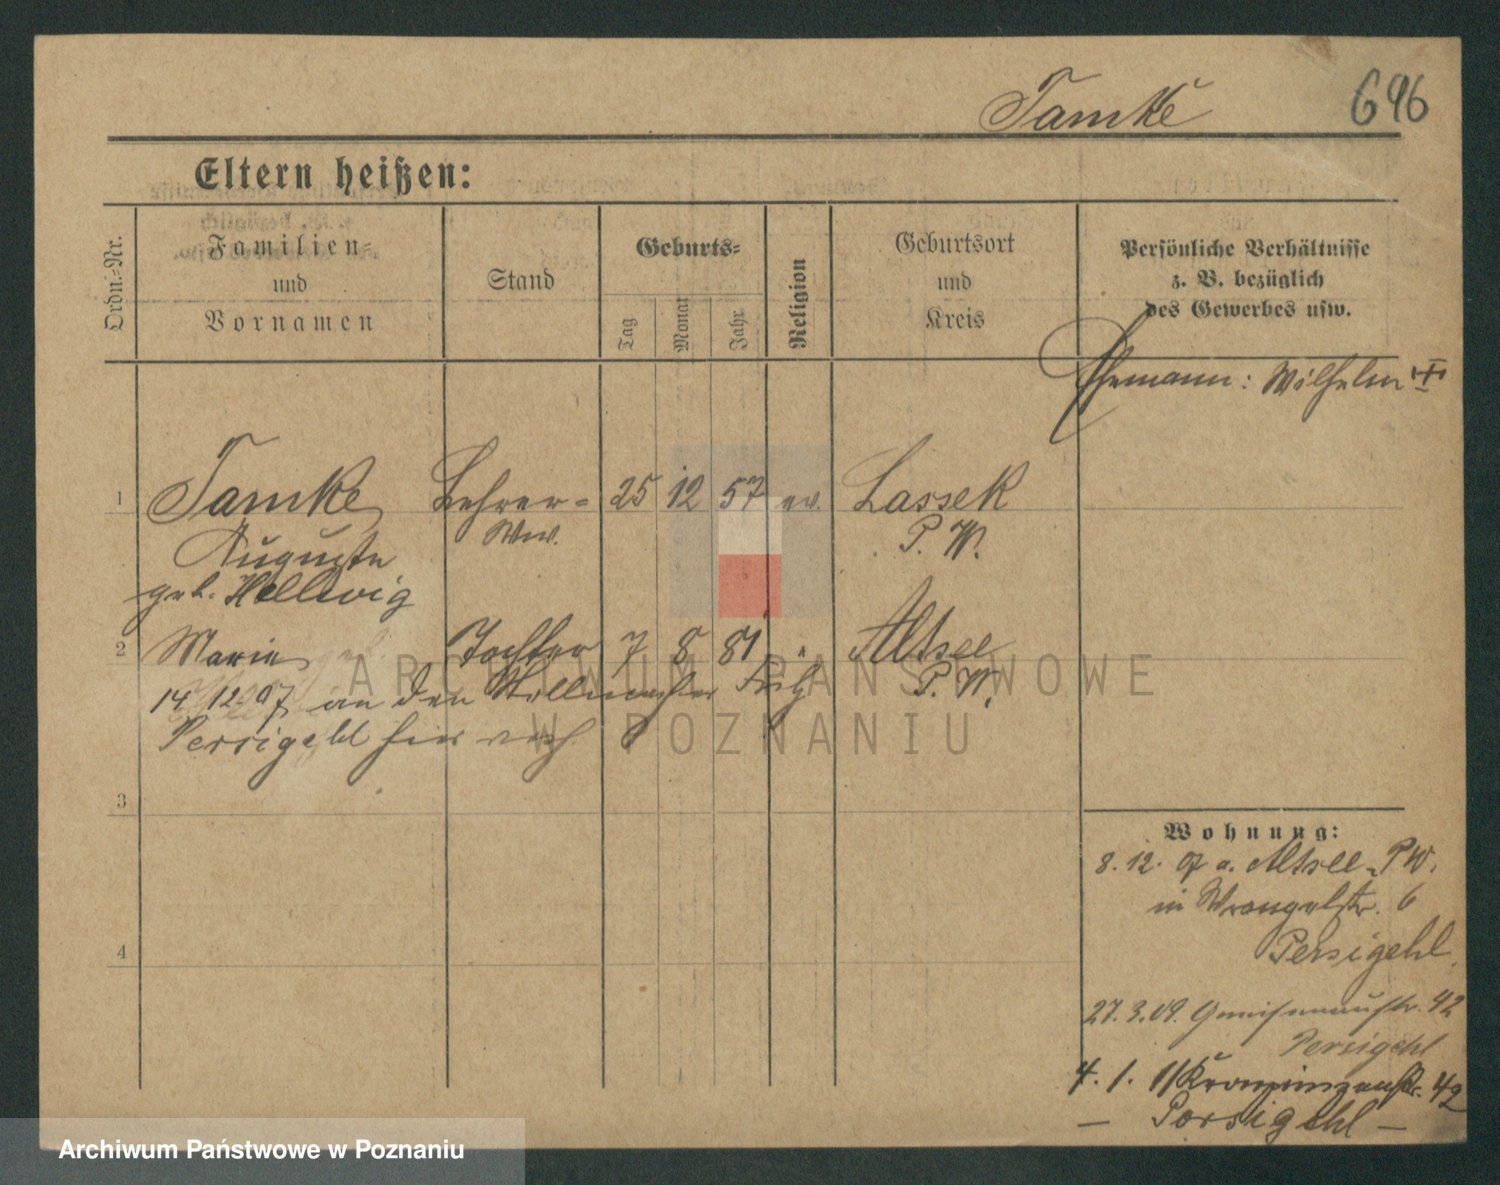 Tamke 696
Eltern heißen:
Ordn.-Nr.
Familien-
und
Vornamen
Stand
Geburts-
Tag
Monat
Jahr
Religion
Geburtsort
und
Kreis
Persönliche Verhältnisse
z. B. bezüglich
des Gewerbes usw.
Ehemann: Wilhelm
1 Tamke Lehrer- 25 12 57 ev. Lassek
Ww. P. W.
Auguste
geb. Hellwig
2 Marie Tochter 7 8 81 " Altsee
14.12.07 an den P. W.
Persigehl hier verh.
3
4
Wohnung:
8. 12. 07 a. Altsee P W.
in Wrangelstr. 6
Persigehl.
27.3.09. Gneisenaustr. 42
Persigehl
4. 1. 11 Kronprinzenstr. 42
— Persigehl —
ARCHIWUM PAŃSTWOWE
W POZNANIU
Archiwum Państwowe w Poznaniu